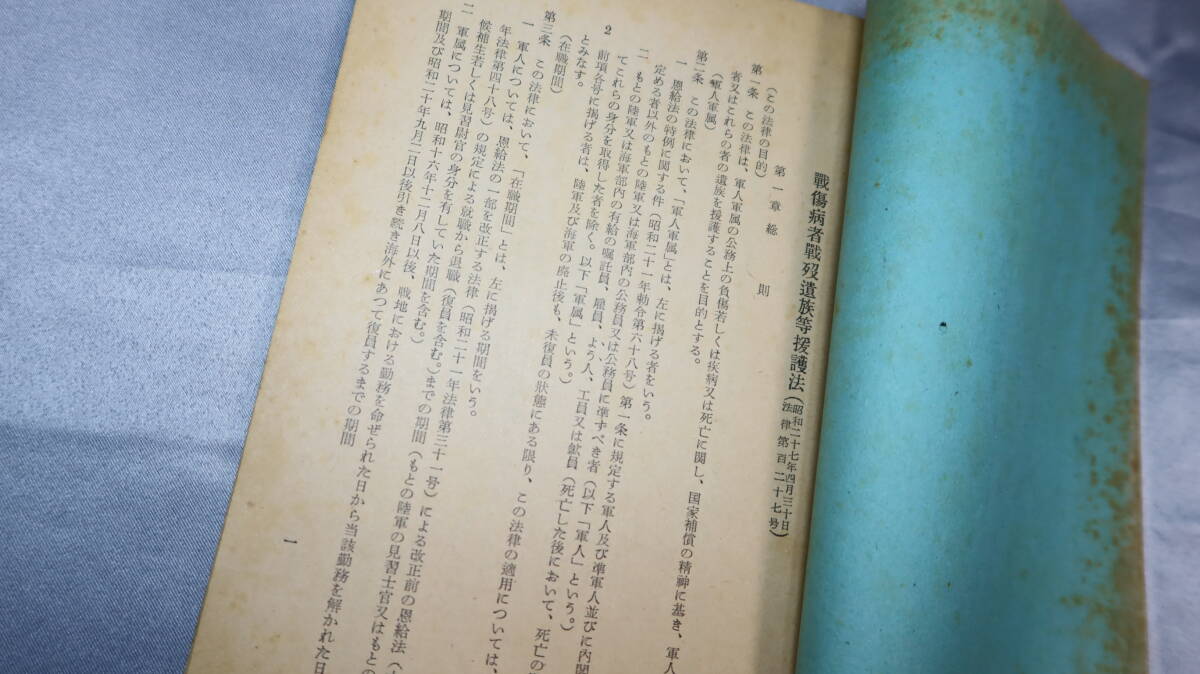 戰傷病者戰歿遺族等援護法
(昭和二十七年四月三十日
法律第百二十七号)
第一章 総則
(この法律の目的)
第一条 この法律は、軍人軍属の公務上の負傷若しくは疾病又は死亡に関し、国家補償の精神に基き、軍人
者又はこれらの者の遺族を援護することを目的とする。
(軍人軍属)
第二条 この法律において、「軍人軍属」とは、左に掲げる者をいう。
一 恩給法の特例に関する件(昭和二十一年勅令第六十八号)第一条に規定する軍人及び準軍人並びに内閣
定める者以外のもとの陸軍又は海軍部内の公務員又は公務員に準ずべき者(以下「軍人」という。)
二 もとの陸軍又は海軍部内の有給の嘱託員、雇員、よう人、工員又は鉱員(死亡した後において、死亡の
てこれらの身分を取得した者を除く。以下「軍属」という。)
2 前項各号に掲げる者は、陸軍及び海軍の廃止後も、未復員の狀態にある限り、この法律の適用については、
とみなす。
(在職期間)
第三条 この法律において、「在職期間」とは、左に掲げる期間をいう。
一 軍人については、恩給法の一部を改正する法律(昭和二十一年法律第三十一号)による改正前の恩給法(
年法律第四十八号)の規定による就職から退職(復員を含む。)までの期間(もとの陸軍の見習士官又はもとの
候補生若しくは見習尉官の身分を有していた期間を含む。)
二 軍属については、昭和十六年十二月八日以後、戦地における勤務を命ぜられた日から当該勤務を解かれた日
期間及び昭和二十年九月二日以後引き続き海外にあつて復員するまでの期間
一